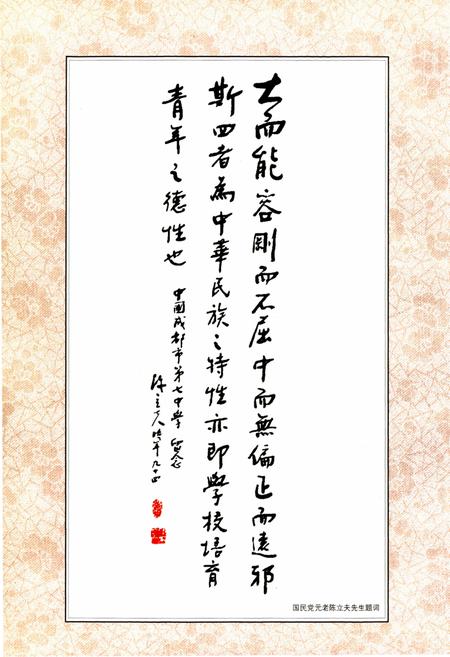 大而能容剛而不屈中而無偏正而遠邪
斯四者為中華民族之特性亦即學校培育
青年之德性也
中國成都市第七中學 留念
陳立夫時年九十四
国民党元老陈立夫先生题词